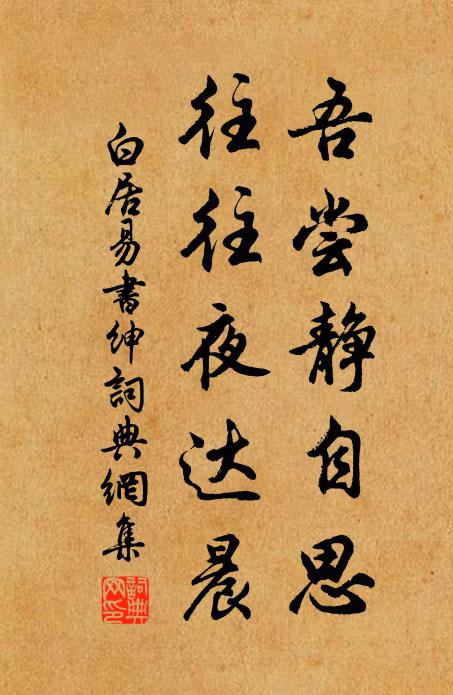 吾尝静自思
往往夜达晨
白居易書紳詞典網集
詞典
网印